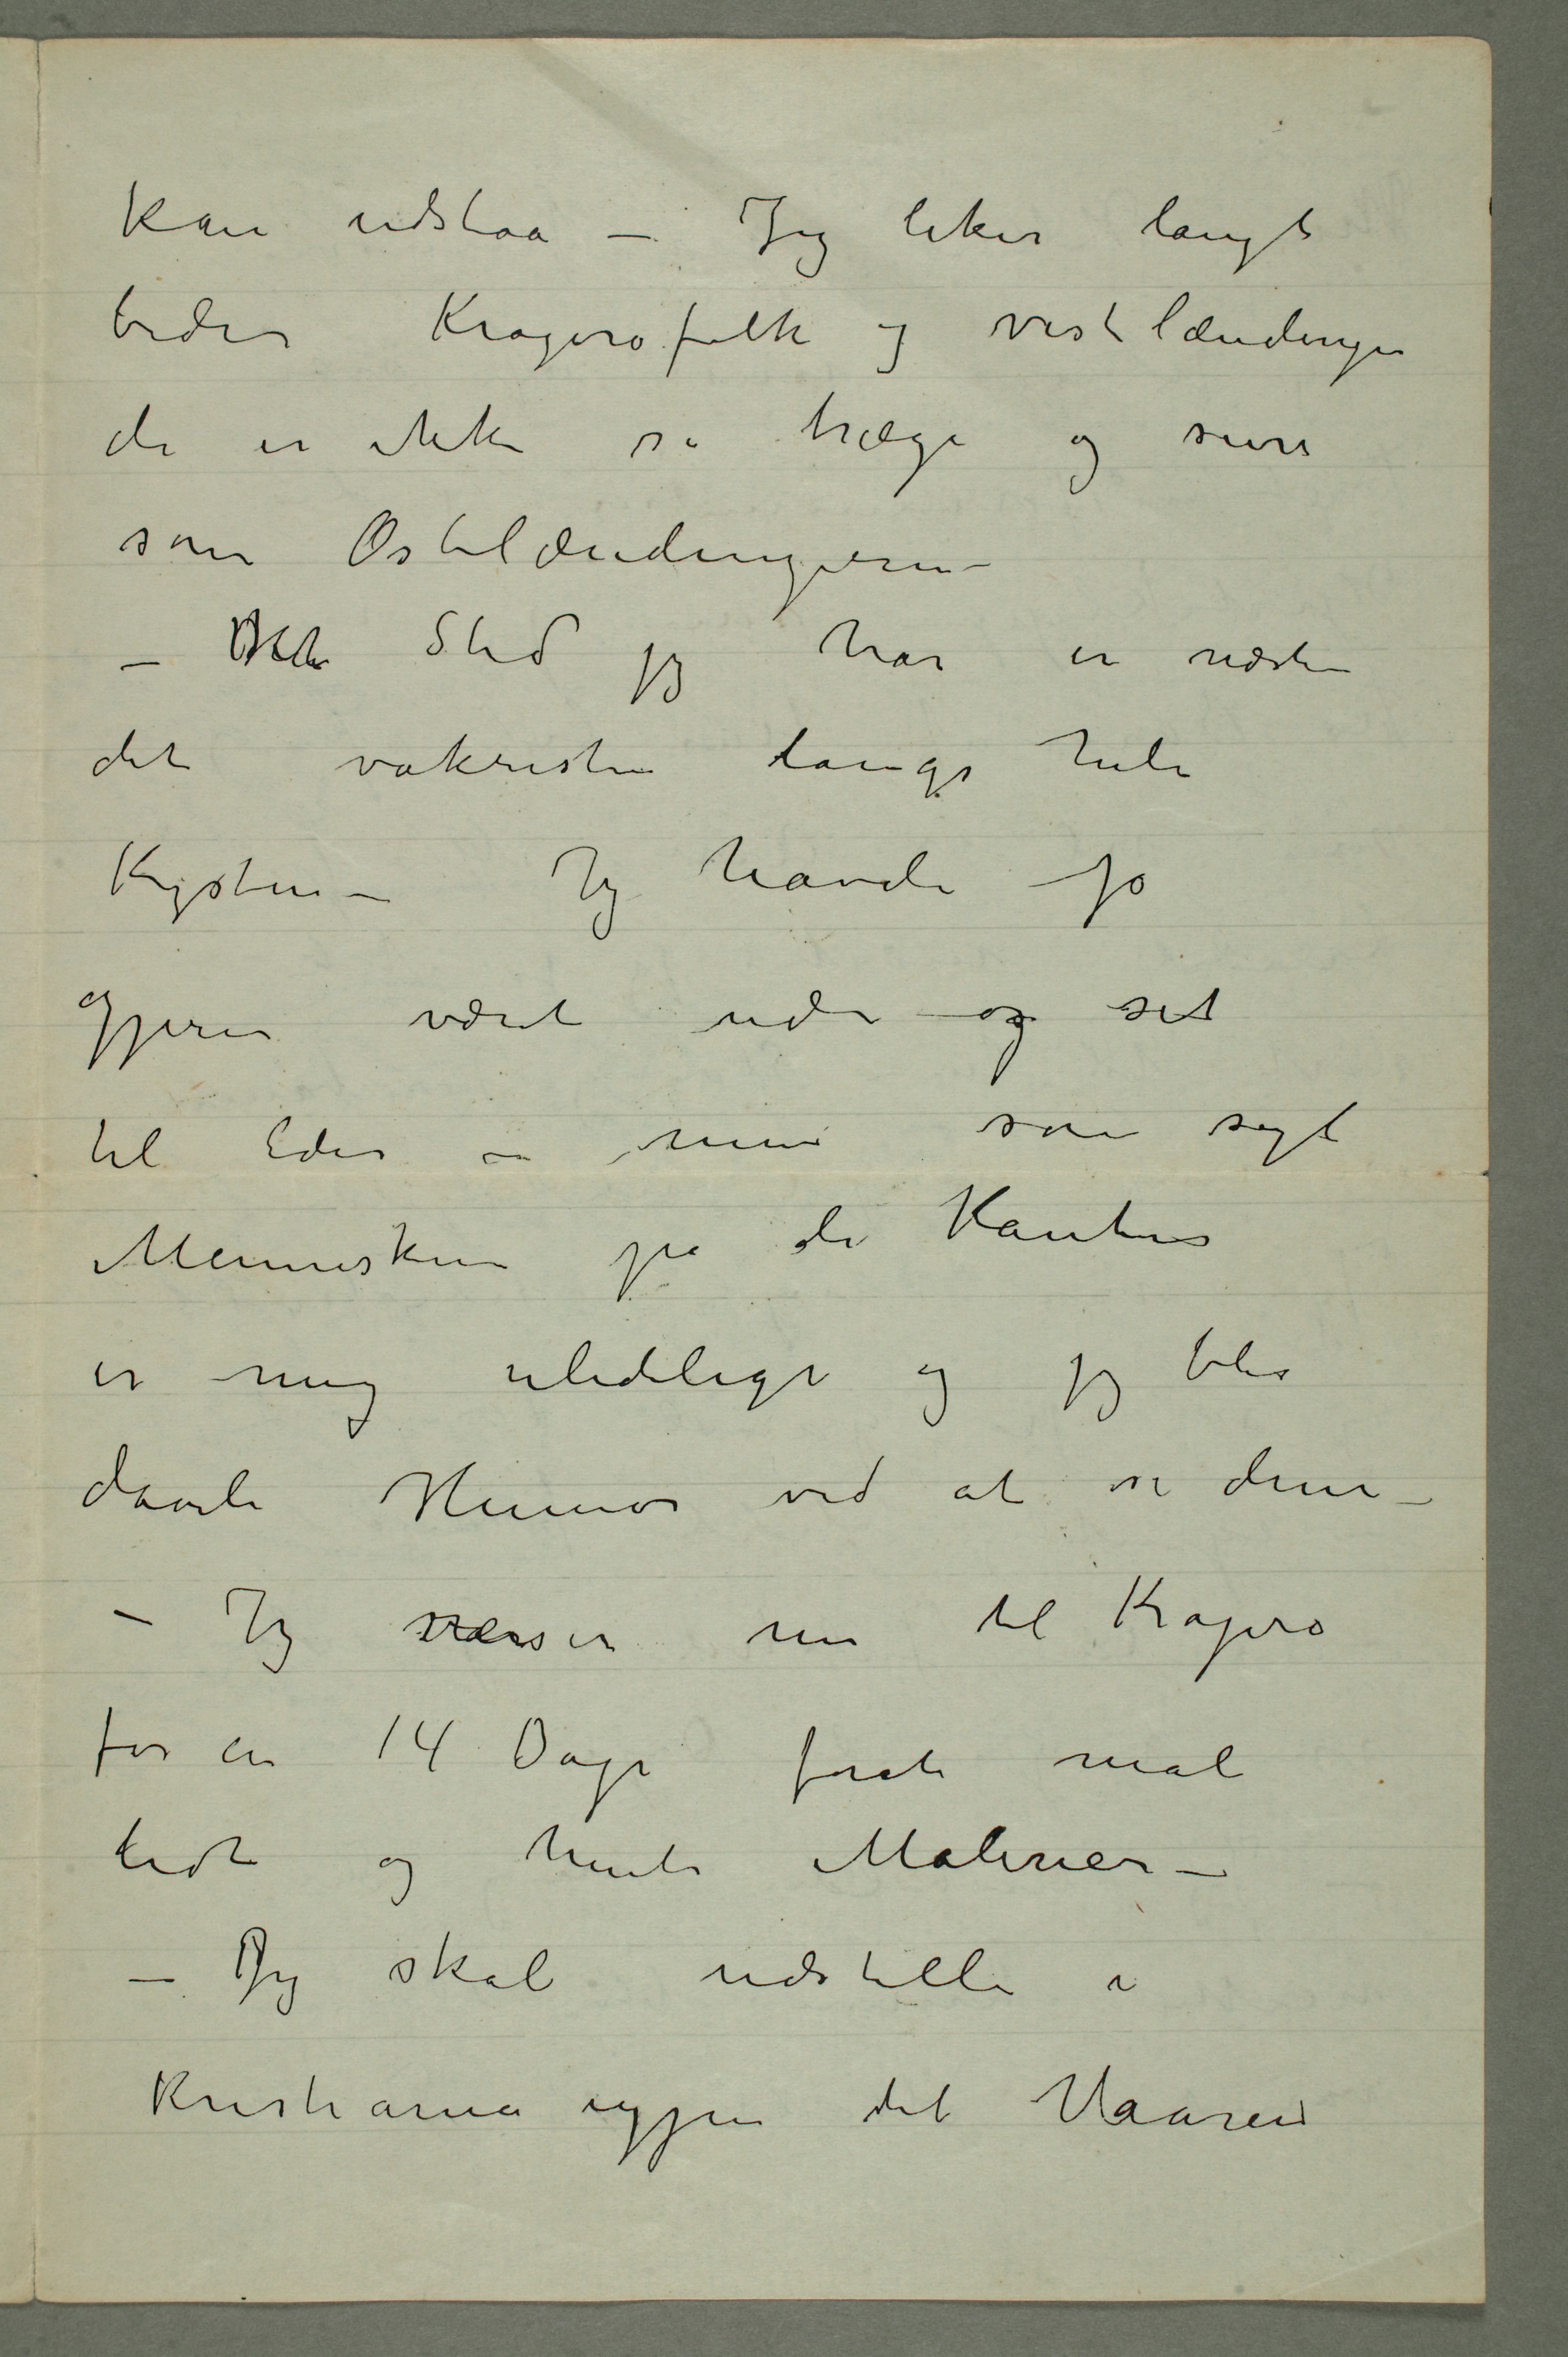 kan udstaa – Jeg liker langt
bedre Kragerøfolk og vestlændinger
de er ikke så træge og sure
som Østlændingerne –
– Det Sted jeg har er næsten
det vakreste langs hele
Kysten – Jeg havde jo
gjerne været nede og set
til Eder – men som sagt
Menneskene på de Kanter
er mig ulidelige og jeg blir
daarlig Humør ved at se dem –
– Jeg reiser nu til Kragerø
for en 14 Dage forat male
lidt og hente Malerier –
– Jeg skal udstille i
Kristiania igjen det Vaaren